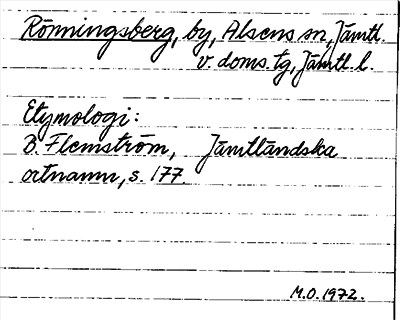 Rönningsberg, by, Alsens sn, Jämtl.
v. doms. tg, Jämtl. l.
Etymologi:
B. Flemström, Jämtländska
ortnamn, s. 177.
M.O. 1972.